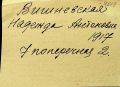 Вишневская
Надежда Антоновна
1917
7 поперечная 2.